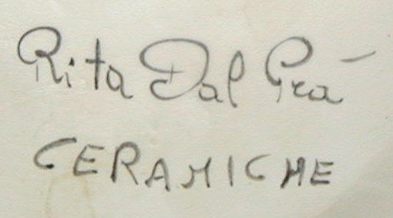 Rita Dal Prà
CERAMICHE